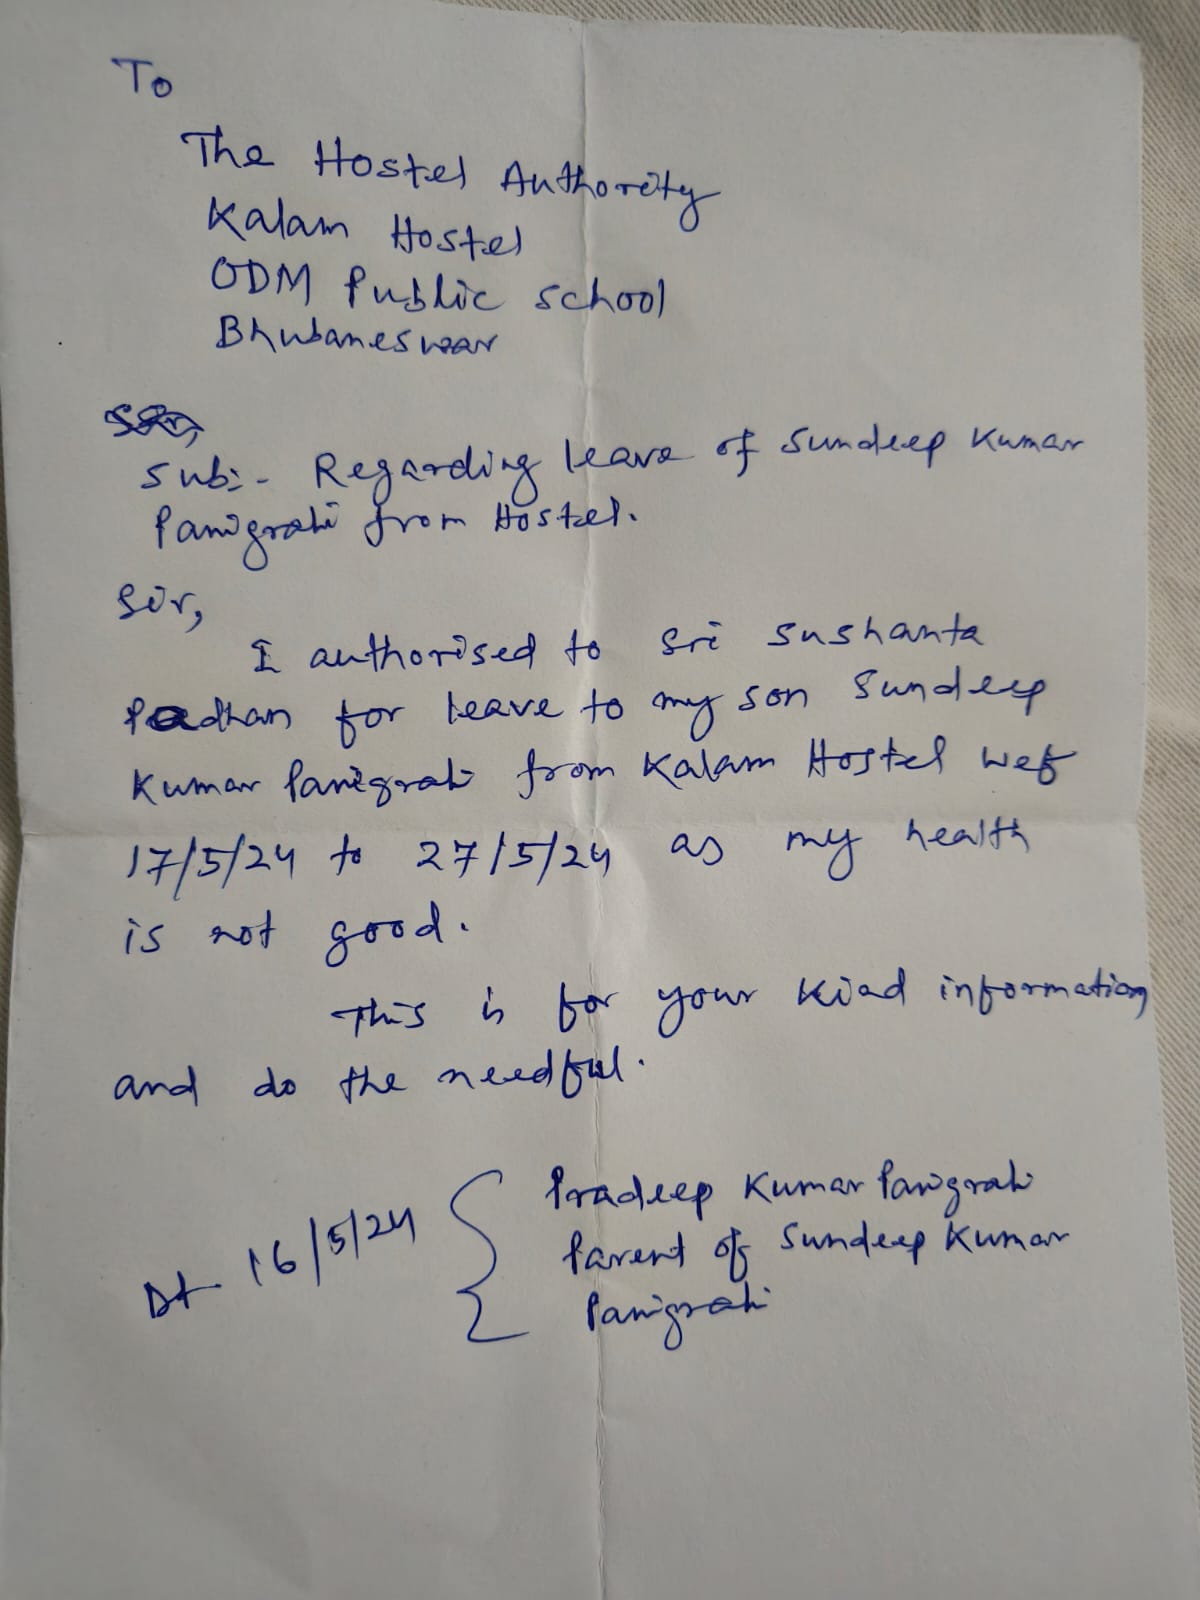 To
The Hostel Authority
Kalam Hostel
ODM Public School
Bhubaneswar
Sub:- Regarding leave of Sundeep Kumar
Panigrahi from Hostel.
Sir,
I authorised to Sri Sushanta
Padhan for leave to my son Sundeep
Kumar Panigrahi from Kalam Hostel wef
17/5/24 to 27/5/24 as my health
is not good.
This is for your kind information
and do the needful.
Dt 16/5/24
Pradeep Kumar Panigrahi
Parent of Sundeep Kumar
Panigrahi